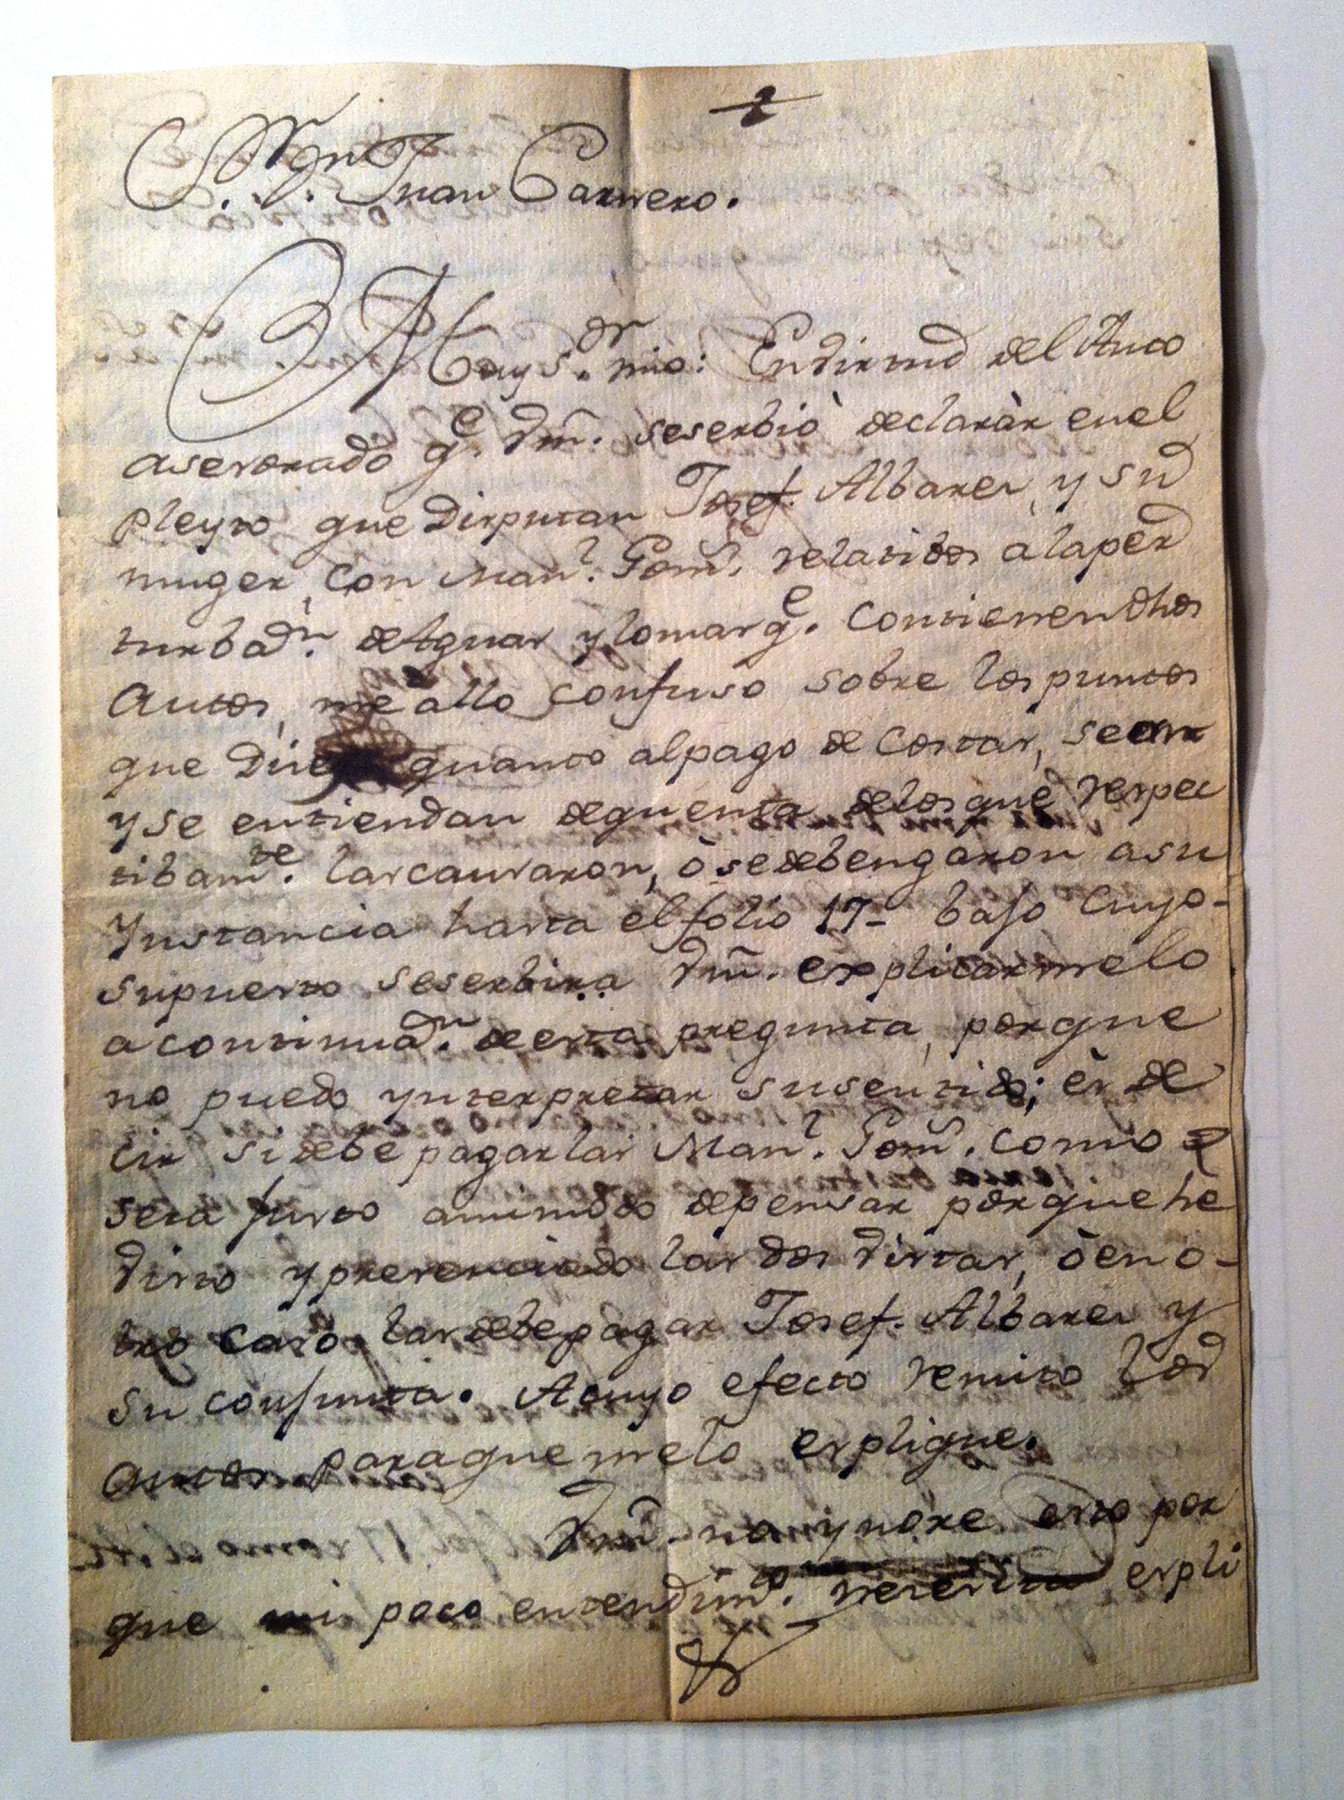 S.r D.n Juan Carrero.
Muy S.or mio: En birtud del Auto
asesorado q.e Vm. seserbiò declaràr en el
pleyto que disputan Josef. Albarez, y su
muger, con Man.l Gom.z relatibos a la per
turbaz.n de Aguas y lomas q.e contienen dhos
Autos, me allo confuso sobre los puntos
que dize quanto al pago de costas, sean
y se entiendan de quenta de los que respec
tibam.te las causaron, ò se debengaron a su
Ynstancia hasta el folio 17- bajo cuyo-
supuesto seserbira Vm. explicarmelo
a continuaz.n de esta pregunta, porque
no puedo ynterpretar su sentido; ès de
cir si debe pagarlas Man.l Gom.z como
sera justo a mi modo de pensar porque he
visto y presenciado las dos vistas, ò en o-
tro caso las debe pagar Josef. Albarez y
su conjunta. A cuyo efecto remito los
autos para que me lo esplique.
Vm. no ygnore esto por
que mi poco entendim.to nesesita espli